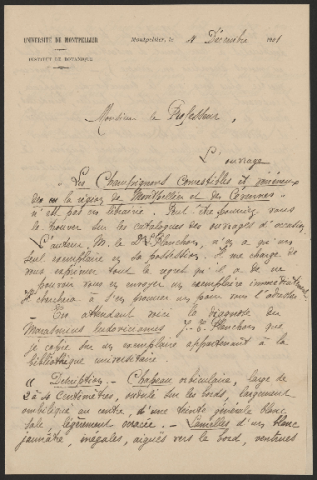 UNIVERSITÉ DE MONTPELLIER
INSTITUT DE BOTANIQUE
Montpellier, le 4 Décembre
Monsieur le Professeur,
L'ouvrage
"Les Champignons Comestibles et vénéneux
de la région de Montpellier et des Cévennes"
n'est pas en librairie. Peut être pourriez vous
le trouver sur les catalogues des ouvrages d'occasion.
L'auteur, M. le Dr Planchon, n'en a qu'un
seul exemplaire en sa possession. Il me charge de
vous exprimer tout le regret qu'il a de ne
pouvoir vous en envoyer un exemplaire immédiatement.
Il cherchera à s'en procurer un pour vous l'adresser
En attendant voici la diagnose du
Marasmius J. E. Planchon que
je copie sur un exemplaire appartenant à la
bibliothèque universitaire.
" Description. - Chapeau orbiculaire, large de
2 à 4 centimètres, ondulé sur les bords, largement
ombiliqué au centre, d'une teinte générale blanc
sale, légèrement rosacée. - Lamelles d'un blanc
jaunâtre, inégales, aiguës vers le bord, ventrues